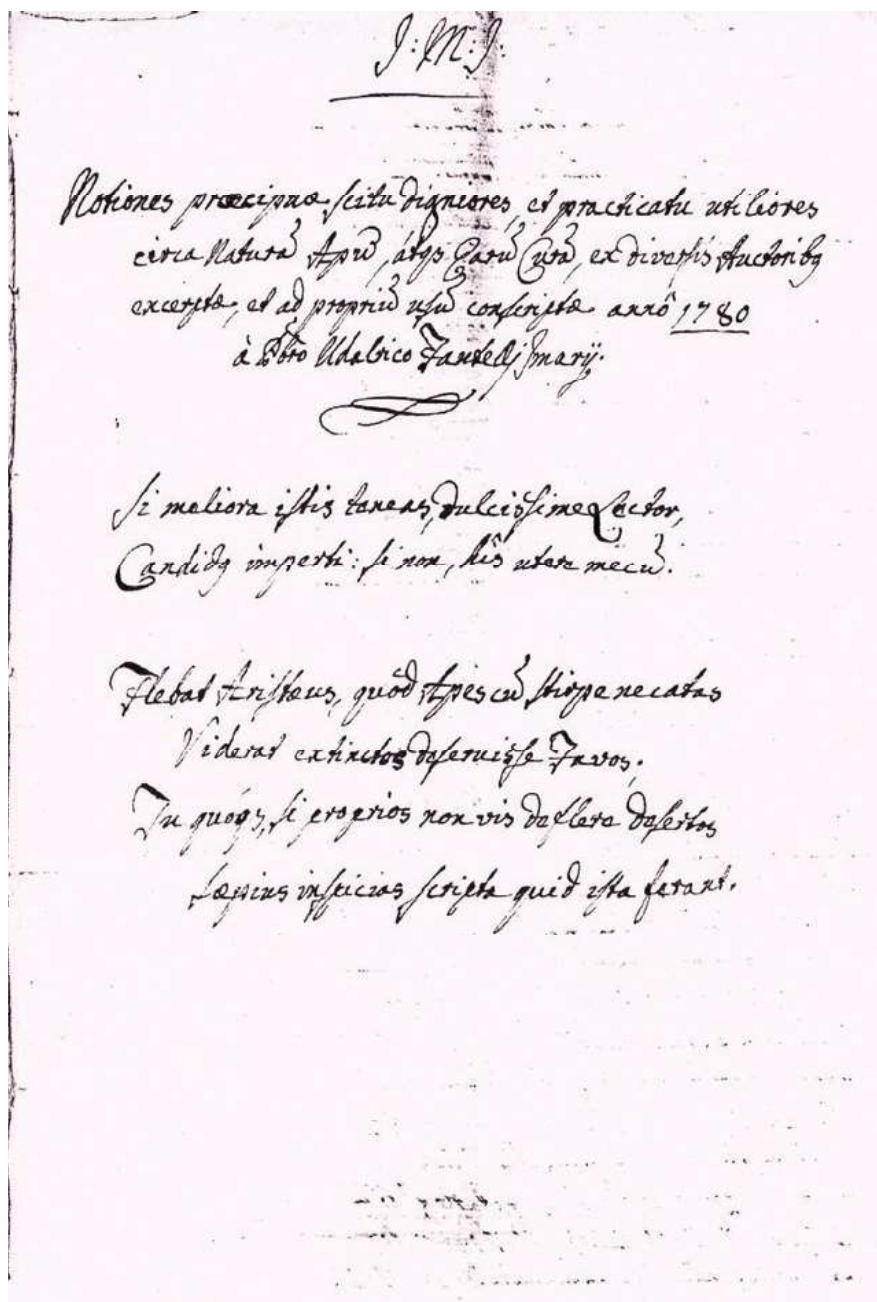 J: M: J:
Notiones præcipuæ scitu digniores, et practicatu utiliores
circa Naturā Apū, atqs Earū Curā, ex diversis Auctoribꝯ
excerptæ, et ad propriū usū conscriptæ annô 1780
à Udalrico
Si meliora istis teneas, dulcissime Lector,
Candidꝯ imperti: si non, hîs utere mecū.
Flebat Aristæus, quôd Apes cū stirpe necatas
Viderat extinctos deseruisse Favos.
Tu quóqs, si proprios non vis deflere desertos
sæpius inspicias scripta quid ista ferant.